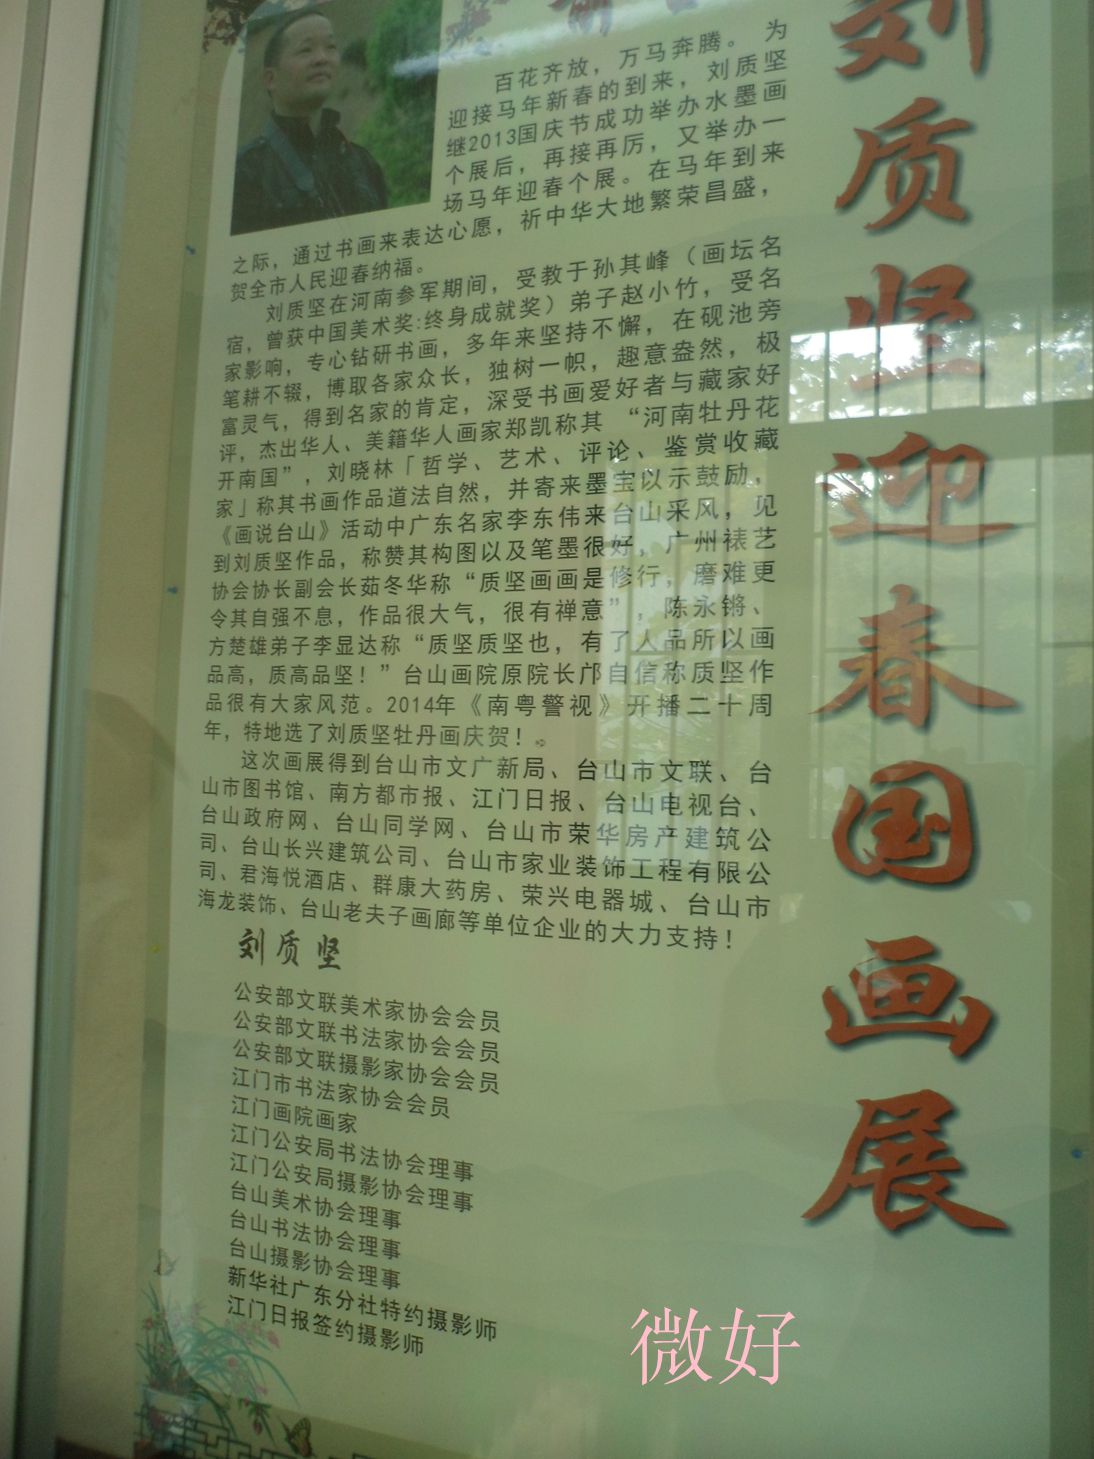 刘质坚迎春国画展
百花齐放，万马奔腾。为
迎接马年新春的到来，刘质坚
继2013国庆节成功举办水墨画
个展后，再接再厉，又举办一
场马年迎春个展。在马年到来
之际，通过书画来表达心愿，祈中华大地繁荣昌盛，
贺全市人民迎春纳福。
刘质坚在河南参军期间，受教于孙其峰（画坛名
宿，曾获中国美术奖:终身成就奖）弟子赵小竹，受名
家影响，专心钻研书画，多年来坚持不懈，在砚池旁
笔耕不辍，博取各家众长，独树一帜，趣意盎然，极
富灵气，得到名家的肯定，深受书画爱好者与藏家好
评，杰出华人、美籍华人画家郑凯称其 “河南牡丹花
开南国”，刘晓林「哲学、艺术、评论、鉴赏收藏
家」称其书画作品道法自然，并寄来墨宝以示鼓励，
《画说台山》活动中广东名家李东伟来台山采风，见
到刘质坚作品，称赞其构图以及笔墨很好，广州裱艺
协会协长副会长茹冬华称“质坚画画是修行，磨难更
令其自强不息，作品很大气，很有禅意”，陈永锵、
方楚雄弟子李显达称“质坚质坚也，有了人品所以画
品高，质高品坚！”台山画院原院长邝自信称质坚作
品很有大家风范。2014年《南粤警视》开播二十周
年，特地选了刘质坚牡丹画庆贺！。
这次画展得到台山市文广新局、台山市文联、台
山市图书馆、南方都市报、江门日报、台山电视台、
台山政府网、台山同学网、台山市荣华房产建筑公
司、台山长兴建筑公司、台山市家业装饰工程有限公
司、君海悦酒店、群康大药房、荣兴电器城、台山市
海龙装饰、台山老夫子画廊等单位企业的大力支持！
刘质坚
公安部文联美术家协会会员
公安部文联书法家协会会员
公安部文联摄影家协会会员
江门市书法家协会会员
江门画院画家
江门公安局书法协会理事
江门公安局摄影协会理事
台山美术协会理事
台山书法协会理事
台山摄影协会理事
新华社广东分社特约摄影师
江门日报签约摄影师
微好